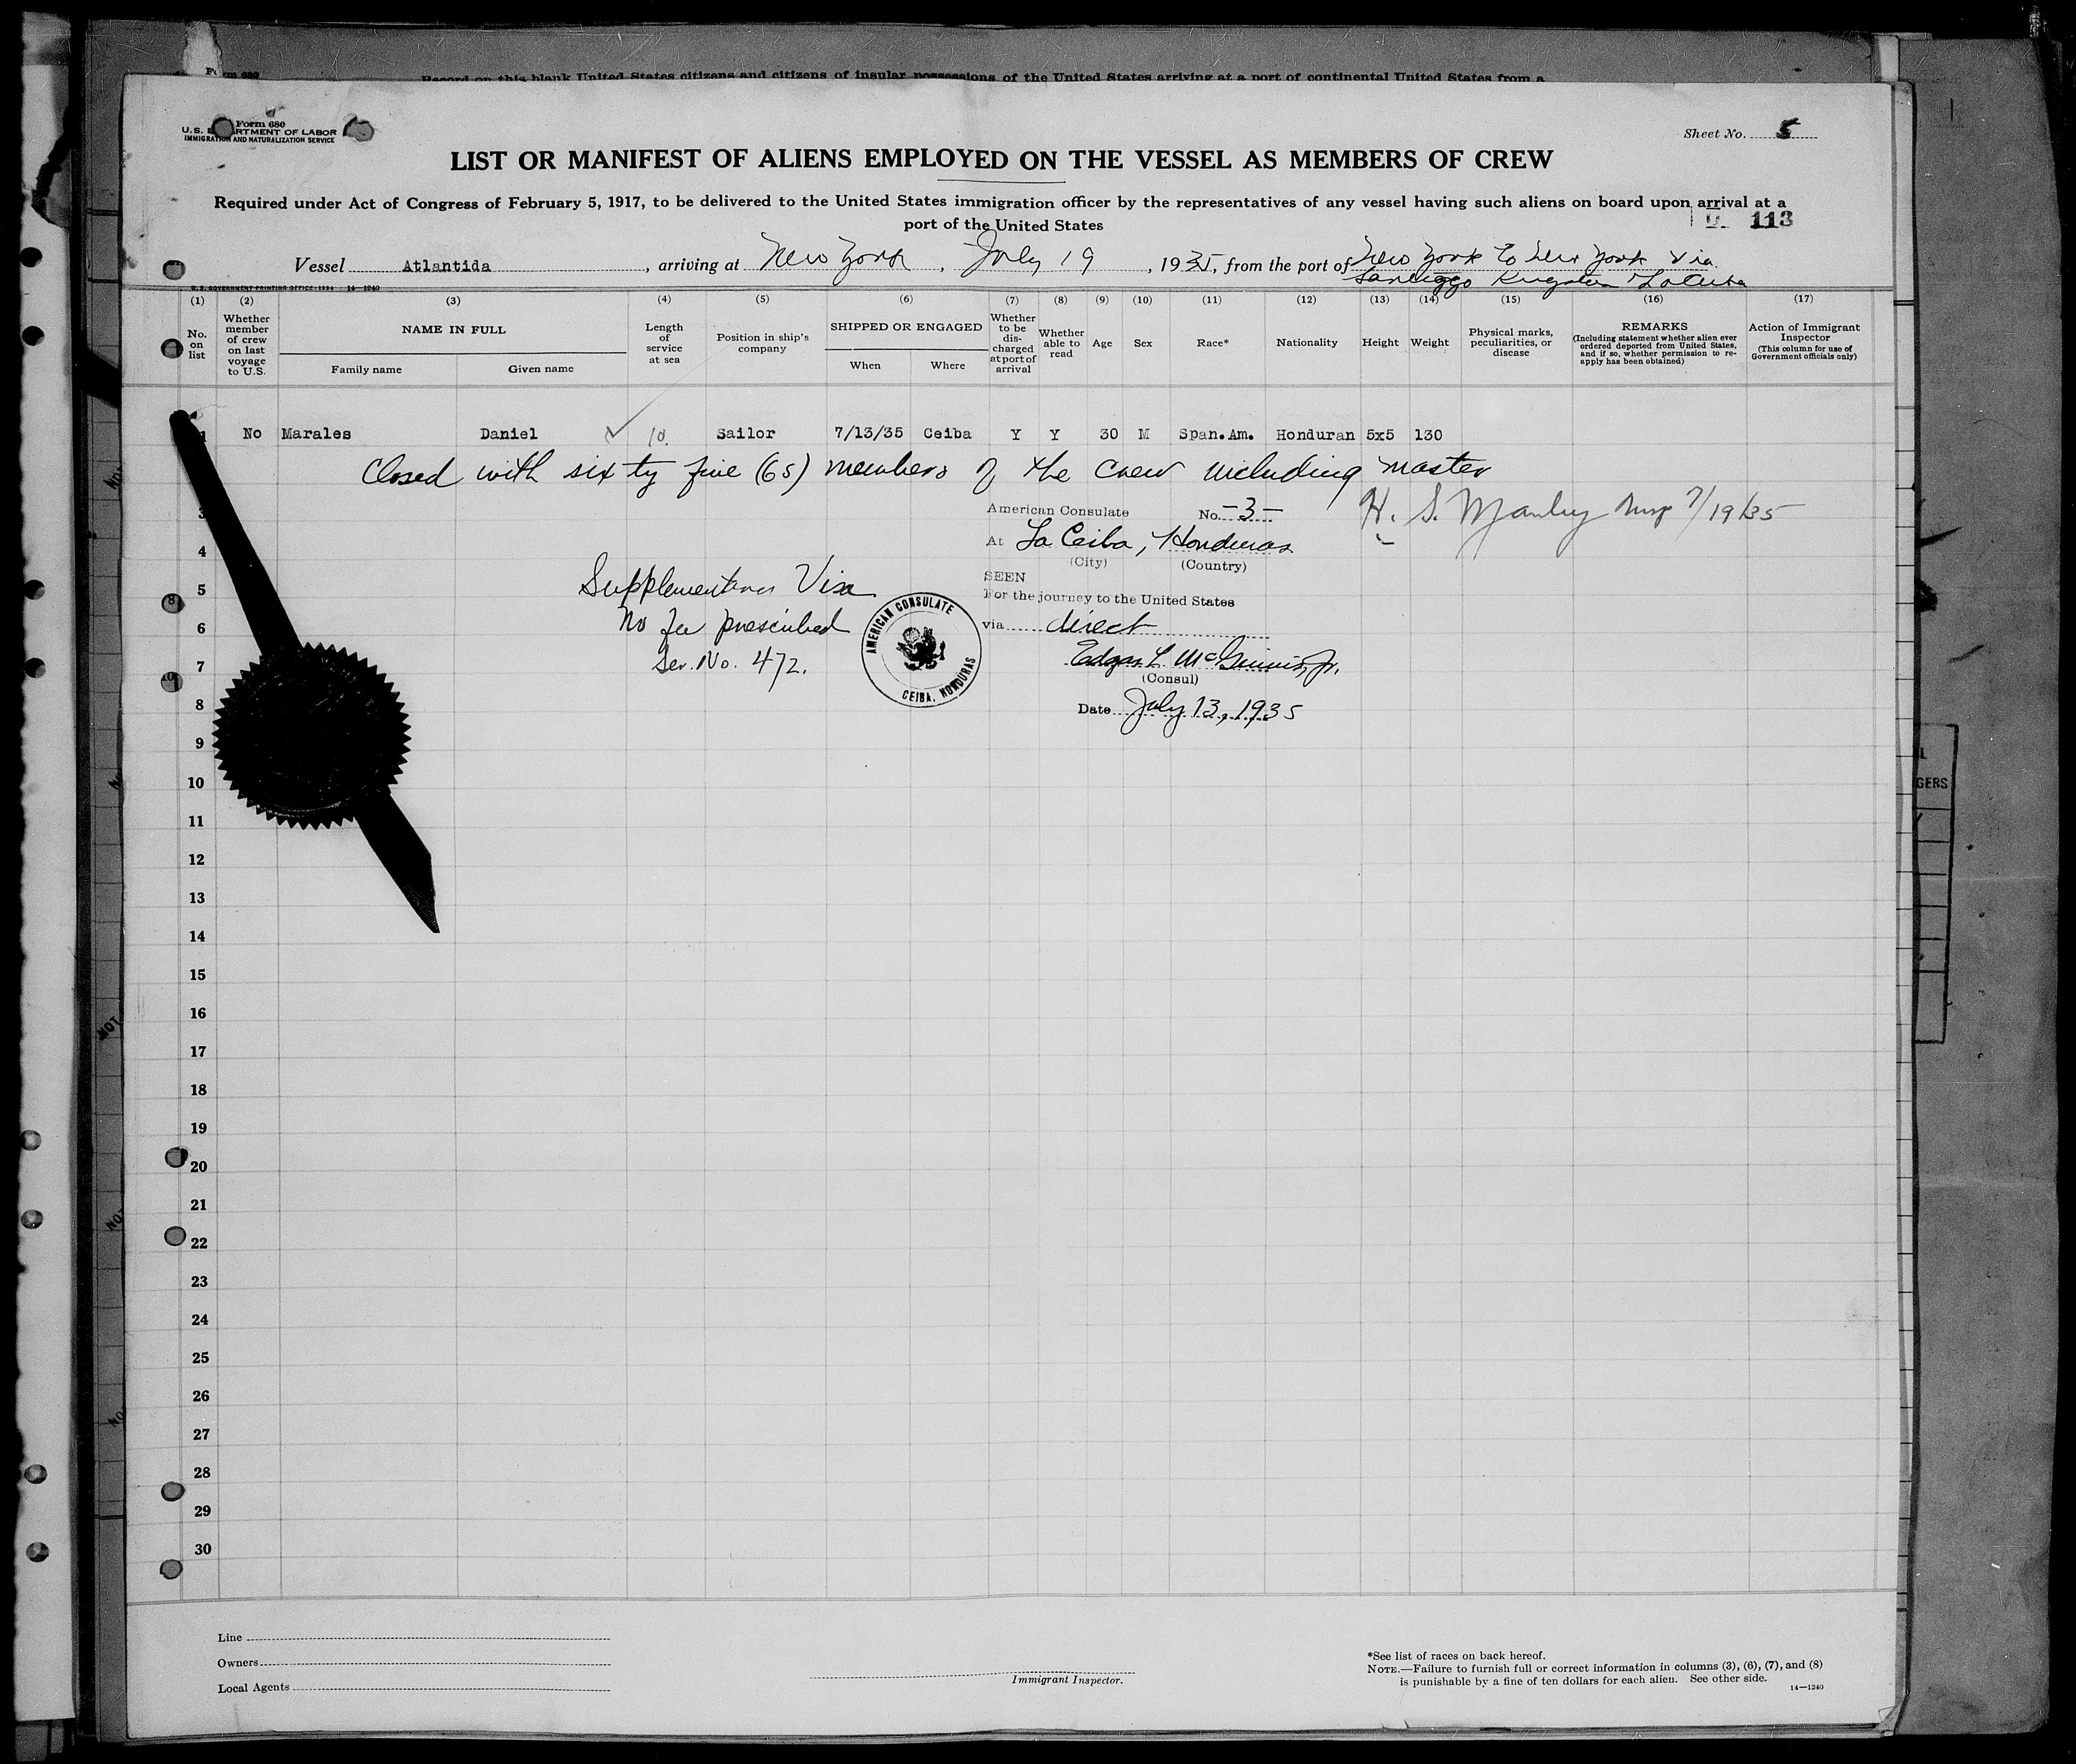 Record on this blank United States citizens and citizens of insular possessions of the United States arriving at a port of continental United States from a
Form 680
U.S. DEPARTMENT OF LABOR
IMMIGRATION AND NATURALIZATION SERVICE
Sheet No. 5
LIST OR MANIFEST OF ALIENS EMPLOYED ON THE VESSEL AS MEMBERS OF CREW
Required under Act of Congress of February 5, 1917, to be delivered to the United States immigration officer by the representatives of any vessel having such aliens on board upon arrival at a
port of the United States
113
Vessel Atlantida, arriving at New York, July 19, 1935, from the port of New York to New York via
Santiago Kingston La Ceiba
U.S. GOVERNMENT PRINTING OFFICE: 1934 14—1240
(1) (2) (3) (4) (5) (6) (7) (8) (9) (10) (11) (12) (13) (14) (15) (16) (17)
No. on list
Whether member of crew on last voyage to U.S.
NAME IN FULL
Family name
Given name
Length of service at sea
Position in ship's company
SHIPPED OR ENGAGED
When
Where
Whether to be discharged at port of arrival
Whether able to read
Age
Sex
Race*
Nationality
Height
Weight
Physical marks, peculiarities, or disease
REMARKS
(Including statement whether alien ever ordered deported from United States, and if so, whether permission to re-apply has been obtained)
Action of Immigrant Inspector
(This column for use of Government officials only)
1 No Marales Daniel 10 Sailor 7/13/35 Ceiba Y Y 30 M Span.Am. Honduran 5x5 130
Closed with sixty five (65) members of the crew including master
H. S. Manley Insp 7/19/35
American Consulate No. -3-
At La Ceiba, Honduras
(City) (Country)
SEEN
For the journey to the United States
via direct
Edgar L. McGinnis, Jr.
(Consul)
Date July 13, 1935
Supplementary Visa
No fee prescribed
Ser. No. 472.
AMERICAN CONSULATE
CEIBA, HONDURAS
3
4
5
6
7
8
9
10
11
12
13
14
15
16
17
18
19
20
21
22
23
24
25
26
27
28
29
30
Line
Owners
Local Agents
Immigrant Inspector.
*See list of races on back hereof.
NOTE.—Failure to furnish full or correct information in columns (3), (6), (7), and (8)
is punishable by a fine of ten dollars for each alien. See other side.
14—1240
GERS